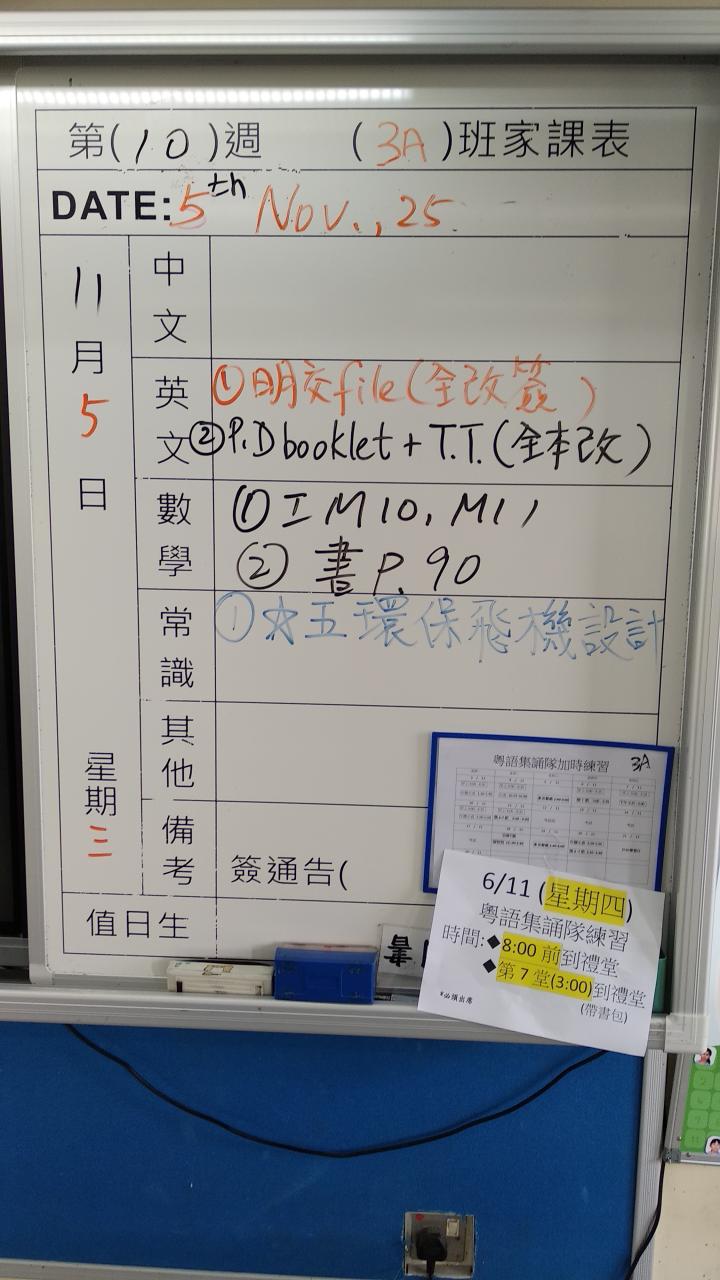 第(10)週 (3A)班家課表
DATE: 5th Nov., 25
11月5日 星期三
中文
英文
①明交file(全改簽)
②P.D booklet + T.T.(全本改)
數學
①工M10, M11
②書P.90
常識
①☆五環保飛機設計
其他
備考
簽通告(
值日生
粵語集誦隊加時練習 3A
6/11 (星期四)
粵語集誦隊練習
時間:◆8:00 前到禮堂
◆第 7 堂(3:00)到禮堂
(帶書包)
*必須出席